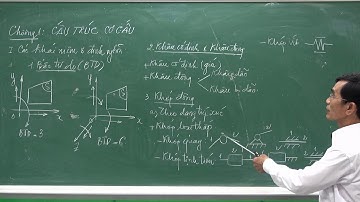 Chương 1: CẤU TRÚC CƠ CẤU
I. Các khái niệm & định nghĩa
1. Bậc tự do (BTD)
y
y
x
x
z
BTD = 3
BTD = 6
2. Khâu cố định & Khâu động
+ Khâu cố định (giá)
+ Khâu động
Khâu dẫn
Khâu bị dẫn
3. Khớp động
a) Theo dạng tiếp xúc
+ Khớp loại thấp
- Khớp quay
- Khớp tịnh tiến
- Khớp vít